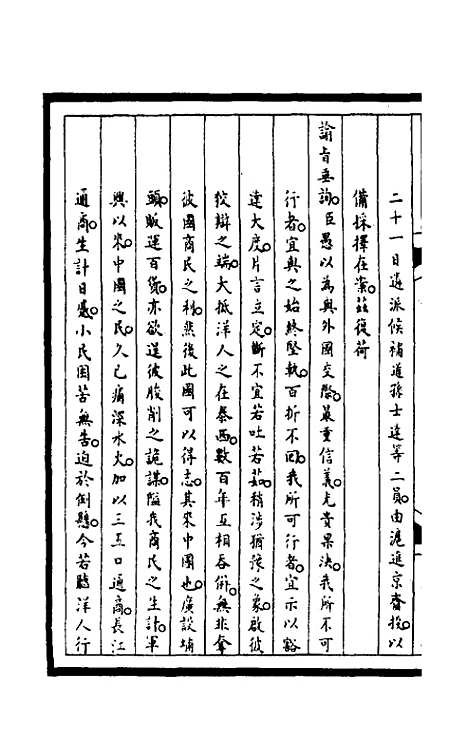 二十一日遴派候補道孫士達等二員。由滬進京。賫投。以
備採擇在案。茲復荷
諭旨垂詢。臣愚以為與外國交際。最重信義。尤貴果決。我所不可
行者。宜與之始終堅執。百折不回。我所可行者。宜示以豁
達大度。片言立定。斷不宜若吐若茹。稍涉猶豫之象。啟彼
狡辯之端。大抵洋人之在泰西。數百年互相吞併。無非奪
彼國商民之利。然後此國可以得志。其來中國也。廣設埔
頭。販運百貨。亦欲逞彼朘削之詭謀。隘我商民之生計。軍
興以來。中國之民。久已痛深水火。加以三五口通商。長江
通商。生計日蹙。小民困苦無告。迫於倒懸。今若聽洋人行